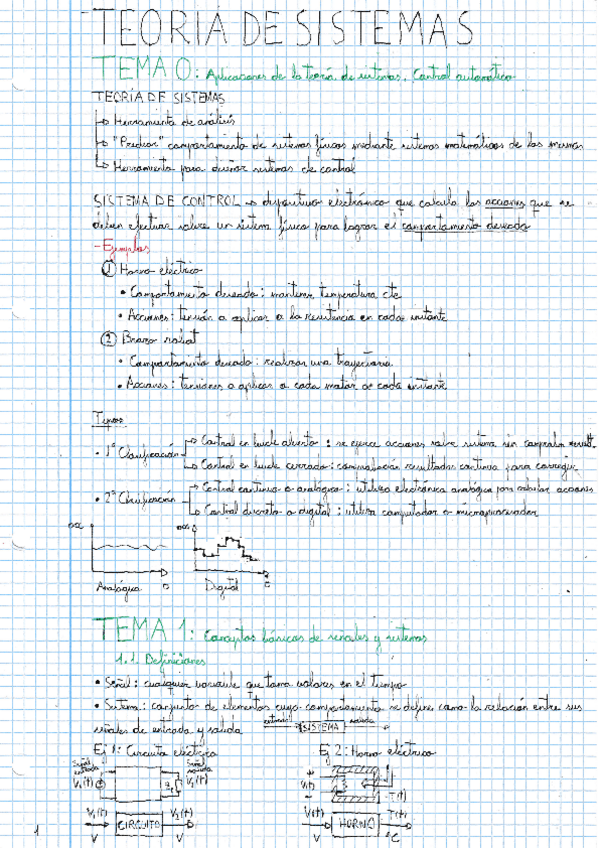 TEORÍA DE SISTEMAS
TEMA 0: Aplicaciones de la teoría de sistemas. Control automático
TEORÍA DE SISTEMAS
Herramienta de análisis
"Predecir" comportamiento de sistemas físicos mediante sistemas matemáticos de los mismos
Herramienta para diseñar sistemas de control
SISTEMA DE CONTROL → dispositivo electrónico que calcula las acciones que se
deben efectuar sobre un sistema físico para lograr el comportamiento deseado
- Ejemplos
① Horno eléctrico
• Comportamiento deseado: mantener temperatura cte
• Acciones: tensión a aplicar a la resistencia en cada instante
② Brazo robot
• Comportamiento deseado: realizar una trayectoria
• Acciones: tensiones a aplicar a cada motor a cada instante
Tipos
• 1ª Clasificación
Control en bucle abierto: se ejerce acciones sobre sistema sin comprobar result.
Control en bucle cerrado: comprobación resultados continua para corregir
• 2ª Clasificación
Control continuo o analógico: utiliza electrónica analógica para calcular acciones
Control discreto o digital: utiliza computador o microprocesador
Analógica
Digital
TEMA 1: Conceptos básicos de señales y sistemas
1.1. Definiciones
• Señal: cualquier variable que toma valores en el tiempo
• Sistema: conjunto de elementos cuyo comportamiento se define como la relación entre sus
señales de entrada y salida
entrada SISTEMA salida
Ej 1: Circuito eléctrico
Ej 2: Horno eléctrico
Señal entrada
Señal salida
V₁(t)
V₂(t)
V(t)
T(t)
V₁(t) CIRCUITO V₂(t)
V V
V(t) HORNO T(t)
V °C
1